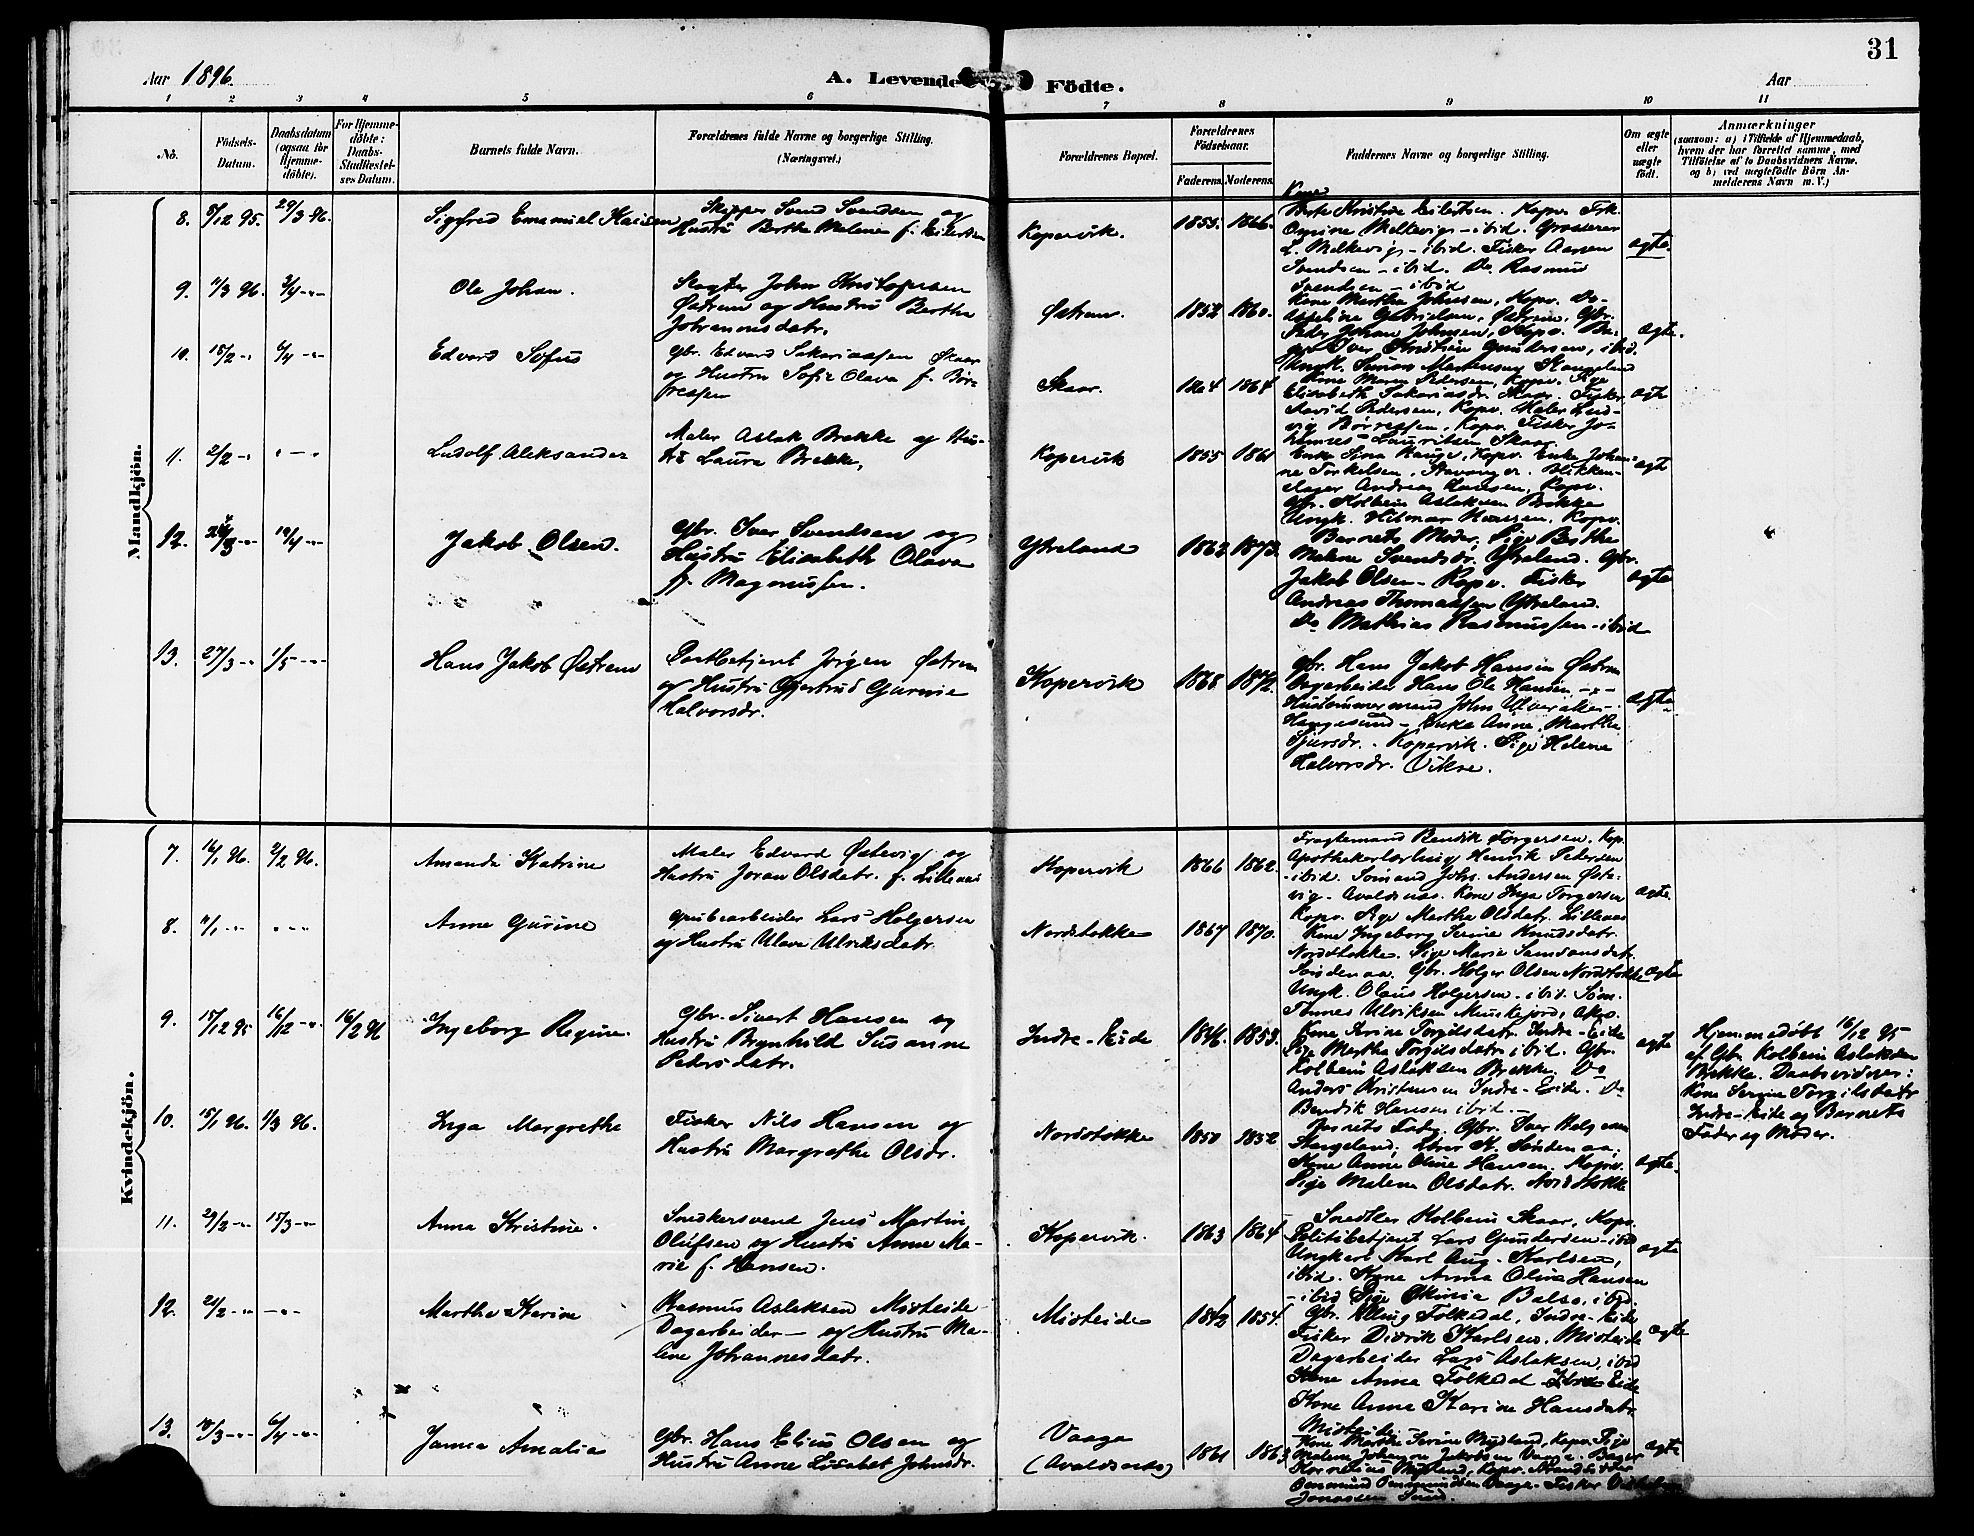 31
Aar 1896.
A. Levende Födte.
Aar
1 2 3 4 5 6 7 8 9 10 11
No.
Födsels-
Datum.
Daabsdatum
(ogsaa for
Hjemme-
döbte).
For Hjemme-
döbte:
Daabs-
Stadfæstel-
ses Datum.
Barnets fulde Navn.
Forældrenes fulde Navne og borgerlige Stilling.
(Næringsvei.)
Forældrenes Bopæl.
Forældrenes
Födselsaar.
Faderens. Moderens.
Faddernes Navne og borgerlige Stilling.
Om ægte
eller
uægte
födt.
Anmærkninger
(saasom: a) i Tilfælde af Hjemmedaab,
hvem der har forrettet samme, med
Tilföielse af to Daabsvidners Navne.
og b) ved uægtefödte Börn An-
melderens Navn m. V.)
Mandkjön.
8. 29/3 96.
Sigfred Emanuel
Skipper Svend Svendsen og
Hustru Berthe Malene f. Eilertsen
Kopervik. 1855. 1866.
Kone
Berte Kristine Eilertsen. Kopv.
Melkevig - ibid. Grosserer
L. Melkevig - ibid. Fisker Aanen
Svendsen - ibid. Do. Rasmus
Svendsen - ibid
ægte.
9. 7/3 96.
Ole Johan.
John Kristophersen
Østrem og Hustru Berthe
Johannesdatr.
Østrem. 1832 1860.
Kone Martha Johnsen, Kopv. Do.
Østrem. Gbr.
Peder Johan Johnsen, Kopv.
Iver Kristian Gundersen, ibid.
ægte.
10. 18/2
Edvard Sofus
Gbr. Edvard Sakariassen Skaar
og Hustru Sofie Olava f. Bör-
resen
Skaar. 1864 1864
Ungk. Simon Mortensen Stangeland
Kone Maren Pedersen, Kopv. Pige
Elisabeth Sakariasdr. Skaar. Fisker
David Pedersen, Kopv. Maler Lud-
vig Börresen, Kopv. Fisker Jo-
hannes Lauritsen Skaar.
ægte
11. 2/2
Ludolf Aleksander
Maler Aslak Brekke og Hus-
tru Laura Brekke,
Kopervik 1855 1861
Enke Sina Hauge, Kopv. Enke Johan-
ne Torkelsen, Stavanger. Blikken-
slager Andreas Hansen, Kopv.
Gbr. Kolbein Aslaksen Brekke
Ungk. Hilmar Hansen, Kopv.
ægte
12. 19/4
Jakob Olsen.
Gbr. Iver Svendsen og
Hustru Elisabeth Olava
f. Magnussen.
Ytreland 1862 1873.
Barnets Moder, Pige Berthe
Malene Svendsdr. Ytreland. Gbr.
Jakob Olsen - Kopv. Fisker
Andreas Thomassen Ytreland.
Do Mathias Rasmussen - ibid
ægte
13. 27/3 1/5
Hans Jakob Østrem
Postbetjent Jørgen Østrem
og Hustru Gjertrud Gurine
Halvorsdr.
Kopervik 1868 1872.
Gbr. Hans Jakob Hansen Østrem
Dagarbeider Hans Ole Hansen -"-
Hustømmermand John
Haugesund - Enke Anne Martha
Sjursdr. - Kopervik. Pige Helene
Halvorsdr. Vikre.
ægte
Kvindekjön.
7. 16/1 96. 2/2 96.
Amanda Katrine
Maler Edvard Østevig og
Hustru Joran Olsdatr. f. Lillenaas
Kopervik 1866 1862.
Fragtemand Bendik Torgersen. Kopv.
Apothekerlærling Henrik Petersen
- ibid. Sömand Johs. Andersen Øste-
vig - Avaldsnes. Kone Inga Torgersen
Kopv. Pige Martha Olsdatr. Lillenaas
ægte.
8.
Anne Gurine
Grubearbeider Lars Holgersen
og Hustru Olava Ulriksdatr.
Nordstokke 1867 1870.
Kone Ingeborg Serine Knudsdatr.
Nordstokke. Pige Marie Samsonsdatr.
Söndenaa. Gbr. Holger Olsen Nordstokke
Ungk. Olaus Holgersen - ibid. Söm.
Tönnes Ulriksen
ægte
9. 15/12 95 16/12 16/2 96
Ingeborg Regine.
Gbr. Sivert Hansen og
Hustru Brynhild Susanne
Pedersdatr.
Indre-Eide 1846. 1853.
Kone Serine Torgilsdatr. Indre-Eide
Pige Martha Torgilsdatr ibid. Gbr.
Kolbein Aslaksen Brekke. Do
Anders Kristensen Indre-Eide. Do
Bendik Hansen ibid.
ægte
Hjemmedøbt 16/12 95
af Gbr. Kolbein Aslaksen
Brekke. Daabsvidner:
Kone Serine Torgilsdatr
Indre-Eide og Barnets
Fader og Moder.
10. 15/1 96. 1/3 96.
Inga Margrethe
Fisker Nils Hansen og
Hustru Margrethe Olsdr.
Nordstokke 1850 1852
Barnets Fader. Gbr. Iver
Stangeland, Söndenaa,
Kone Anne Oline Hansen. Kopv.
Pige Malene Olsdatr. Nordstokke
ægte.
11. 29/2 15/3
Anna Kristine.
Snedkersvend Jens Martin
Olufsen og Hustru Anne Ma-
rie f. Hansen.
Kopervik. 1863 1864
Snedker Kolbein Skaar, Kopv.
Politibetjent Lars Gundersen - ibid
Ungkarl Karl Aug. Karlsen,
ibid. Kone Anna Oline Hansen
- ibid Pige ibid.
ægte
12. 2/2
Marthe Karine
Rasmus Aslaksen Misteide -
Dagarbeider - og Hustru Ma-
lene Johannesdatr.
Misteide 1842 1854.
Gbr. Elling Folkedal, Indre-Eide
Fisker Didrik Karlsen, Misteide
Dagarbeider Lars Aslaksen, ibid
Kone Anne Folkedal Indre-Eide
Kone Anne Karine Hansdatr.
Misteide -
ægte
13. 6/4
Amalia
Gbr. Hans Elius Olsen og
Hustru Anne Lisabet Johnsdr.
Vaage
(Avaldsnes) 1861 1863
Kone Marthe Serine Mydland, Kopv. Pige
Malene Jakobsen Vaage. Bager
Mydland, Kopv.
Vaage. Fisker
Jonassen Sund.
ægte